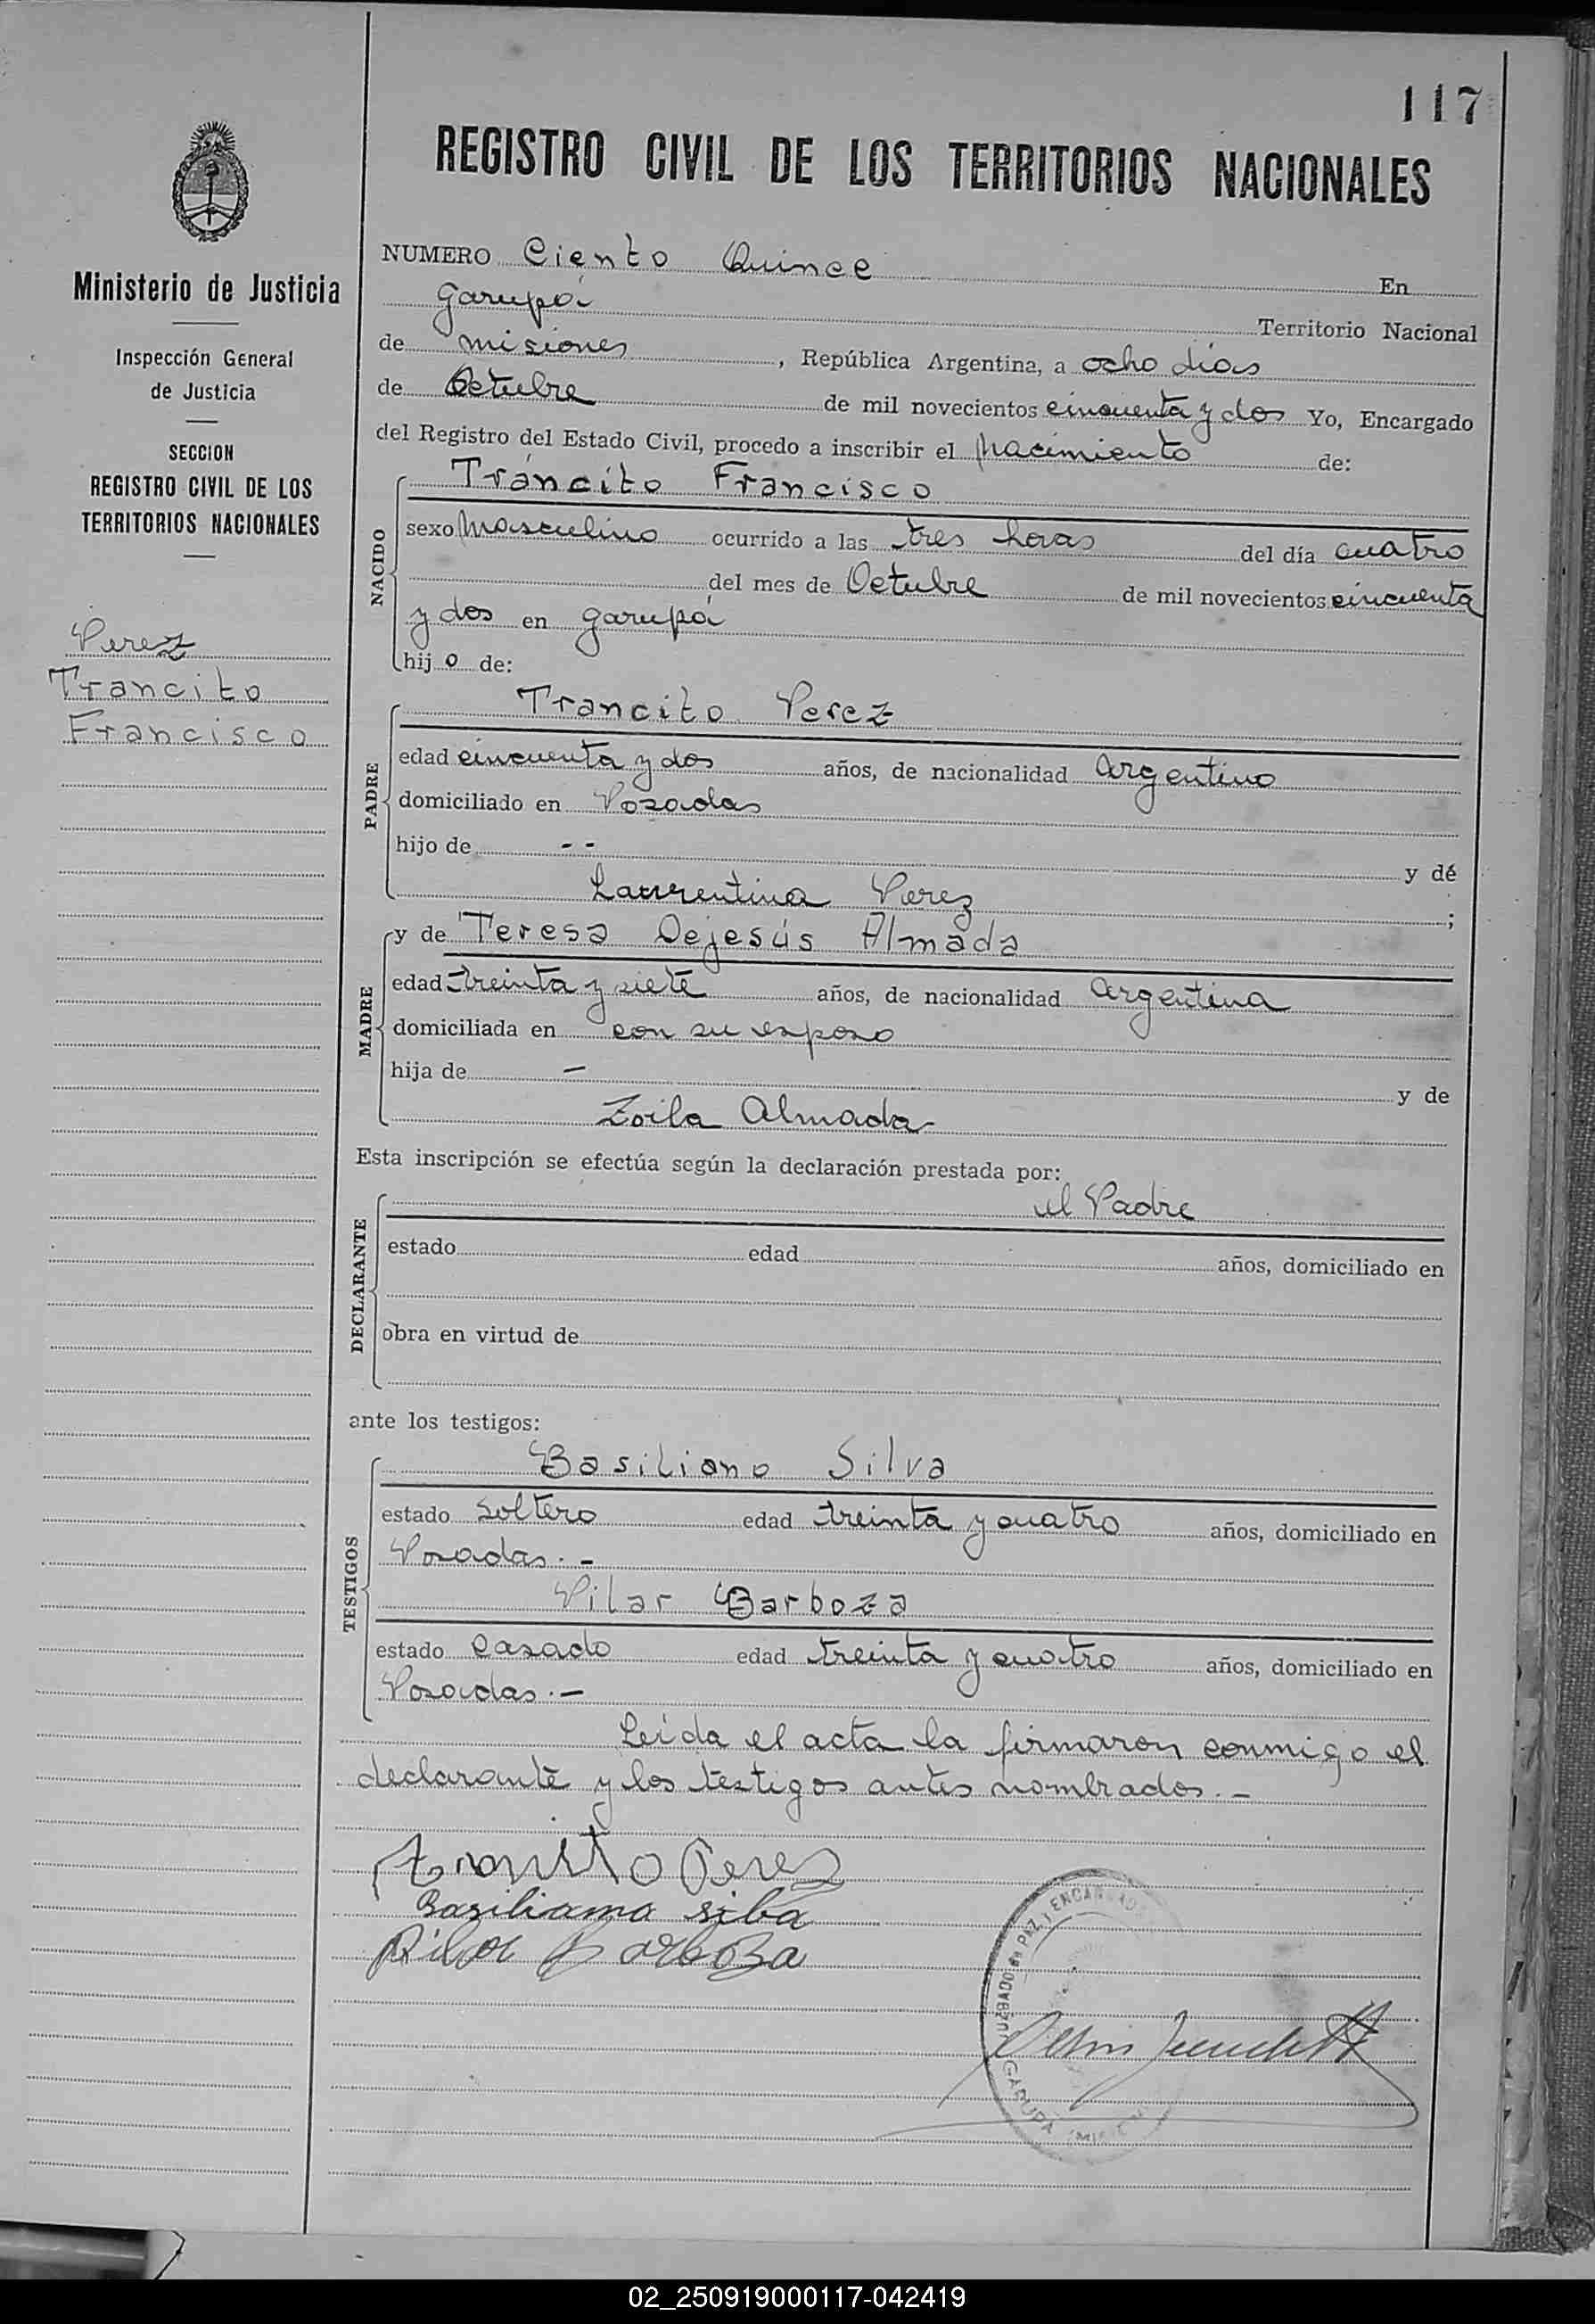 117
REGISTRO CIVIL DE LOS TERRITORIOS NACIONALES
Ministerio de Justicia
Inspección General
de Justicia
SECCION
REGISTRO CIVIL DE LOS
TERRITORIOS NACIONALES
Perez
Trancito
Francisco
NUMERO Ciento Quince En
Garupá Territorio Nacional
de misiones, República Argentina, a ocho dias
de Octubre de mil novecientos cincuenta y dos Yo, Encargado
del Registro del Estado Civil, procedo a inscribir el nacimiento de:
NACIDO
Tráncito Francisco
sexo masculino ocurrido a las tres horas del día cuatro
del mes de Octubre de mil novecientos cincuenta
y dos en garupá
hijo de:
PADRE
Trancito Perez
edad cincuenta y dos años, de nacionalidad Argentino
domiciliado en Posadas
hijo de -- y dé
Laurentina Perez ;
MADRE
y de Teresa Dejesús Almada
edad treinta y siete años, de nacionalidad Argentina
domiciliada en con su esposo
hija de — y de
Zoila Almada
Esta inscripción se efectúa según la declaración prestada por:
DECLARANTE
el Padre
estado edad años, domiciliado en
obra en virtud de
ante los testigos:
TESTIGOS
Basiliano Silva
estado soltero edad treinta y cuatro años, domiciliado en
Posadas.-
Pilar Barboza
estado casado edad treinta y cuatro años, domiciliado en
Posadas.-
Leída el acta la firmaron conmigo el
declarante y los testigos antes nombrados.-
Perez
Basiliama silba
Pilar BarboBa
JUZGADO DE PAZ Y
GARUPA
02_250919000117-042419